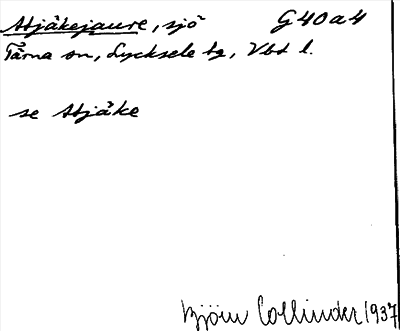 Atjåkejaure, sjö G40a4
Tärna sn, Lycksele tg, Vbd l.
se Atjåke
Björn Collinder 1937